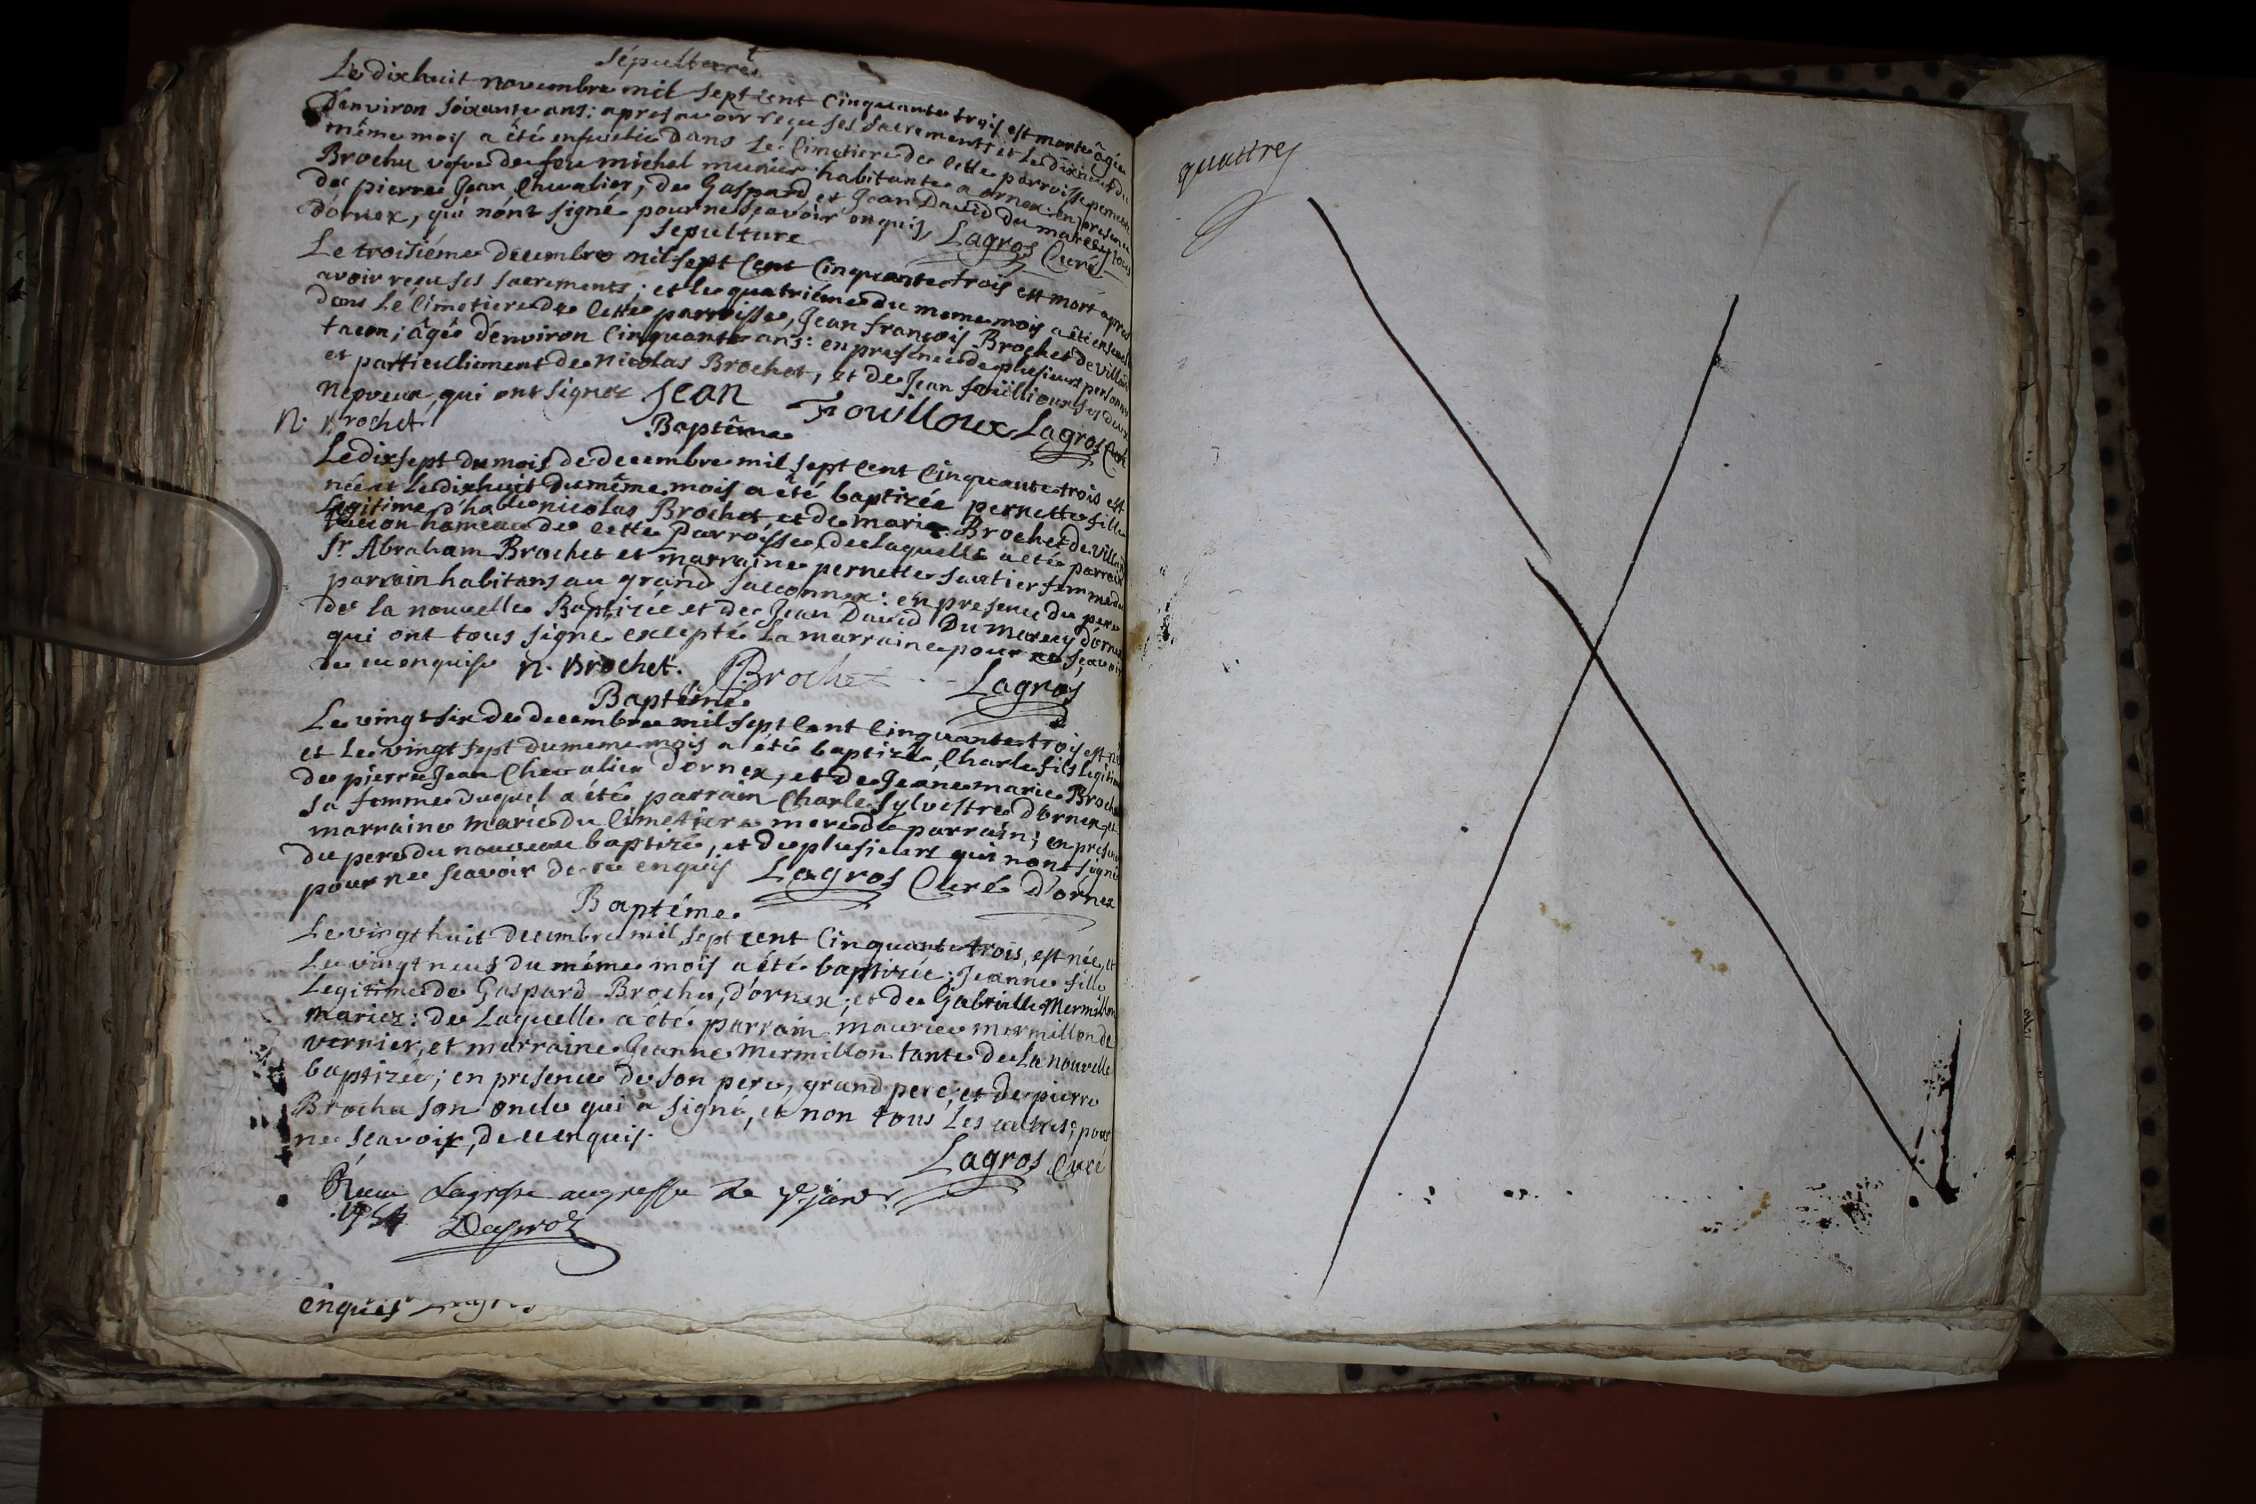 Sépulture
Le dixhuit novembre mil sept cent cinquante trois est morte âgée
d'environ soixante ans: apres avoir reçu ses sacrements et le dixneuf du
même mois a été ensevelie dans Le Cimetiere de cette parroisse pernette
Brochu vefve de feu michel munier habitante a ornex: en presence
de pierre Jean Chevalier, de Gaspard et Jean David du marcey tous
d'ornex, qui n'ont signé pour ne sçavoir enquis Lagros Curé
sepulture
Le troisiéme decembre mil sept Cent Cinquante trois est mort apres
avoir reçu ses sacrements; et le quatriéme du meme mois a été enseveli
dans Le Cimetiere de cette parroisse, Jean françois Brochet de Villars
tacon; âgé d'environ Cinquante ans: en presence de plusieurs personnes
et particulierement de Nicolas Brochet, et de Jean foüillioux ses deux
nepveux, qui ont signez Jean Fouilloux Lagros Curé
N. Brochet
Baptême
Le dixsept du mois de decembre mil sept Cent Cinquante trois est
née et le dixhuit du même mois a été baptizée pernette fille
Legitime d'hable nicolas Brochet, et de marie Brochet de Villars
taccon hameau de cette Parroisse, de Laquelle a été parrain
Sr. Abraham Brochet et marraine pernette sautier femme du
parrain habitans au grand saconnex: en presence du pere
de la nouvelle Baptizée et de Jean David Du Marcey d'ornex
qui ont tous signé excepté La marraine pour ne sçavoir
de ce enquise N. Brochet. Brochet Lagros
Baptême
Le vingt six de decembre mil sept Cent Cinquante trois est né
et Le vingt sept du meme mois a été baptizé, Charle fils legitime
de pierre Jean Chevalier d'ornex, et de Jeane marie Brochu
sa femme duquel a été parrain Charle Sylvestre d'ornex et
marraine marie du Cimetiere mere du parrain; en presence
du pere du nouveau baptizé, et de plusieurs qui n'ont signé
pour ne scavoir de ce enquis Lagros Curé d'ornex
Baptême
Le vingt huit decembre mil sept cent Cinquante trois, est née, et
Le vingt neuf du même mois a été baptizée; Jeanne fille
Legitime de Gaspard Brochu, d'ornex; et de Gabrielle Mermillon
mariez: de Laquelle a été parrain maurice mermillon de
vernier, et marraine Jeanne Mermillon tante de La nouvelle
baptizée; en presence de son pere, grand pere, et de pierre
Brochu son oncle qui a signé, et non tous Les autres, pour
ne scavoir, de ce enquis.
Lagros Curé
au greffe le 7e janvr
1754
enquis
quattre